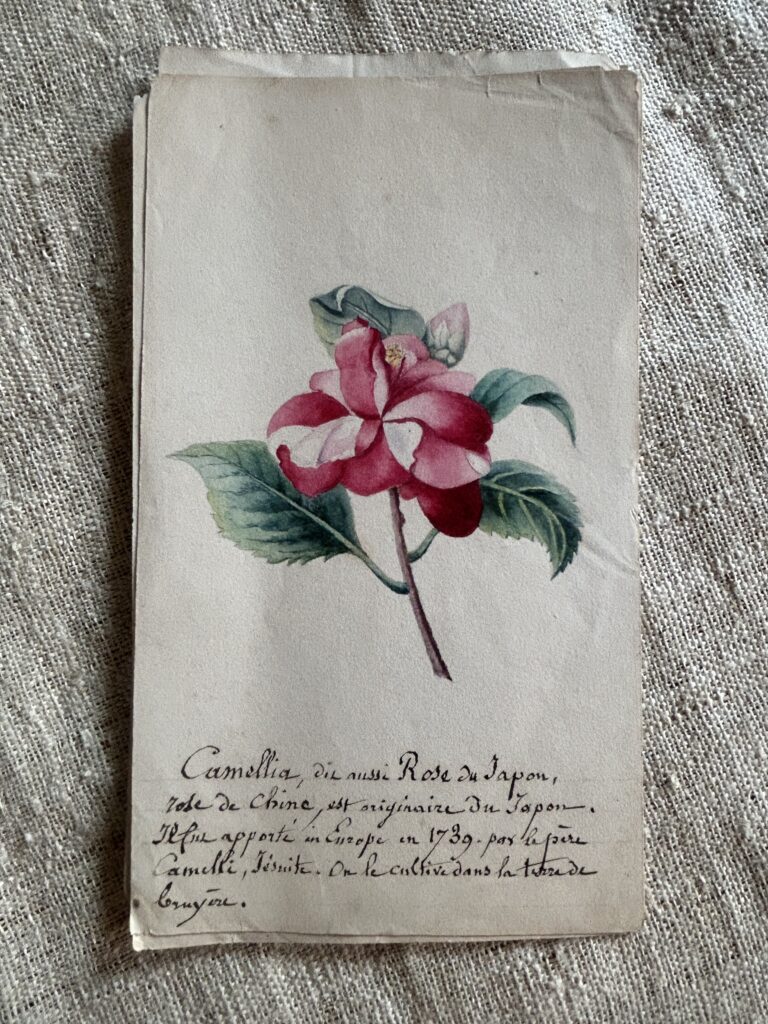 Camellia, dit aussi Rose du Japon,
rose de Chine, est originaire du Japon.
Il fut apporté in Europe en 1739. par le père
Camelli, Jésuite. On le cultive dans la terre de
bruyère.